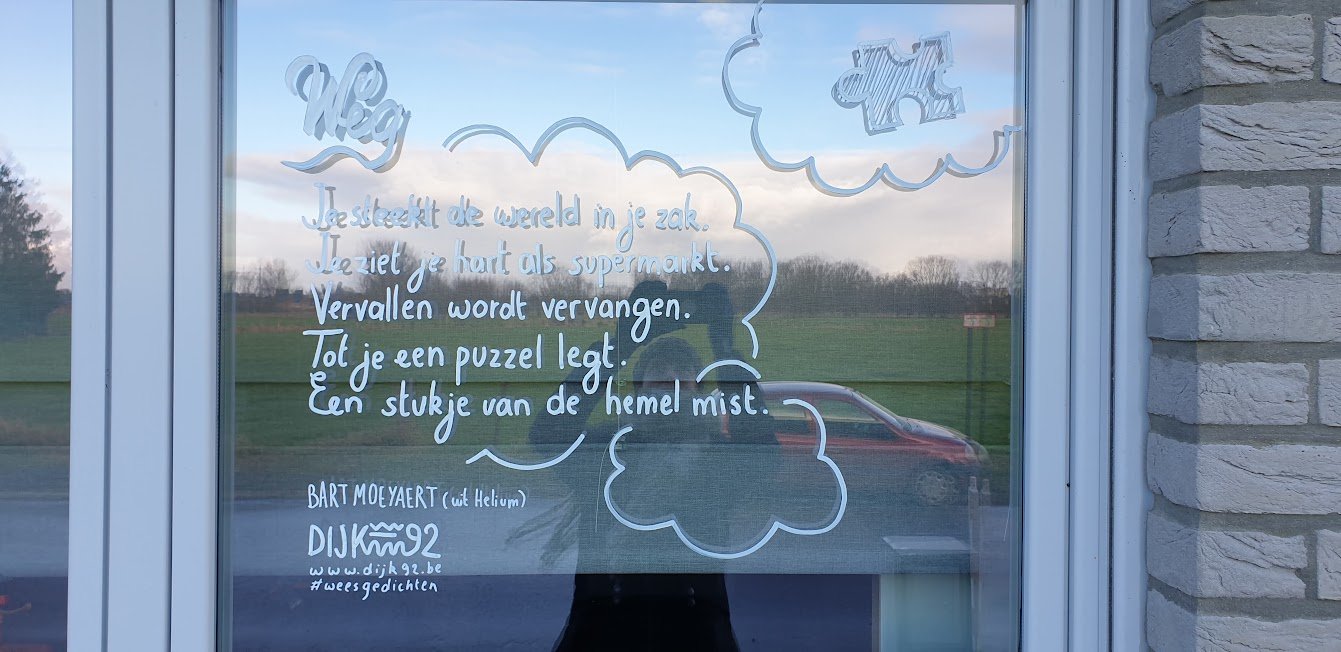 Weg
Je steekt de wereld in je zak.
Je ziet je hart als supermarkt.
Vervallen wordt vervangen.
Tot je een puzzel legt.
Een stukje van de hemel mist.
BART MOEYAERT (uit Helium)
DIJK92
www.dijk92.be
#weesgedichten